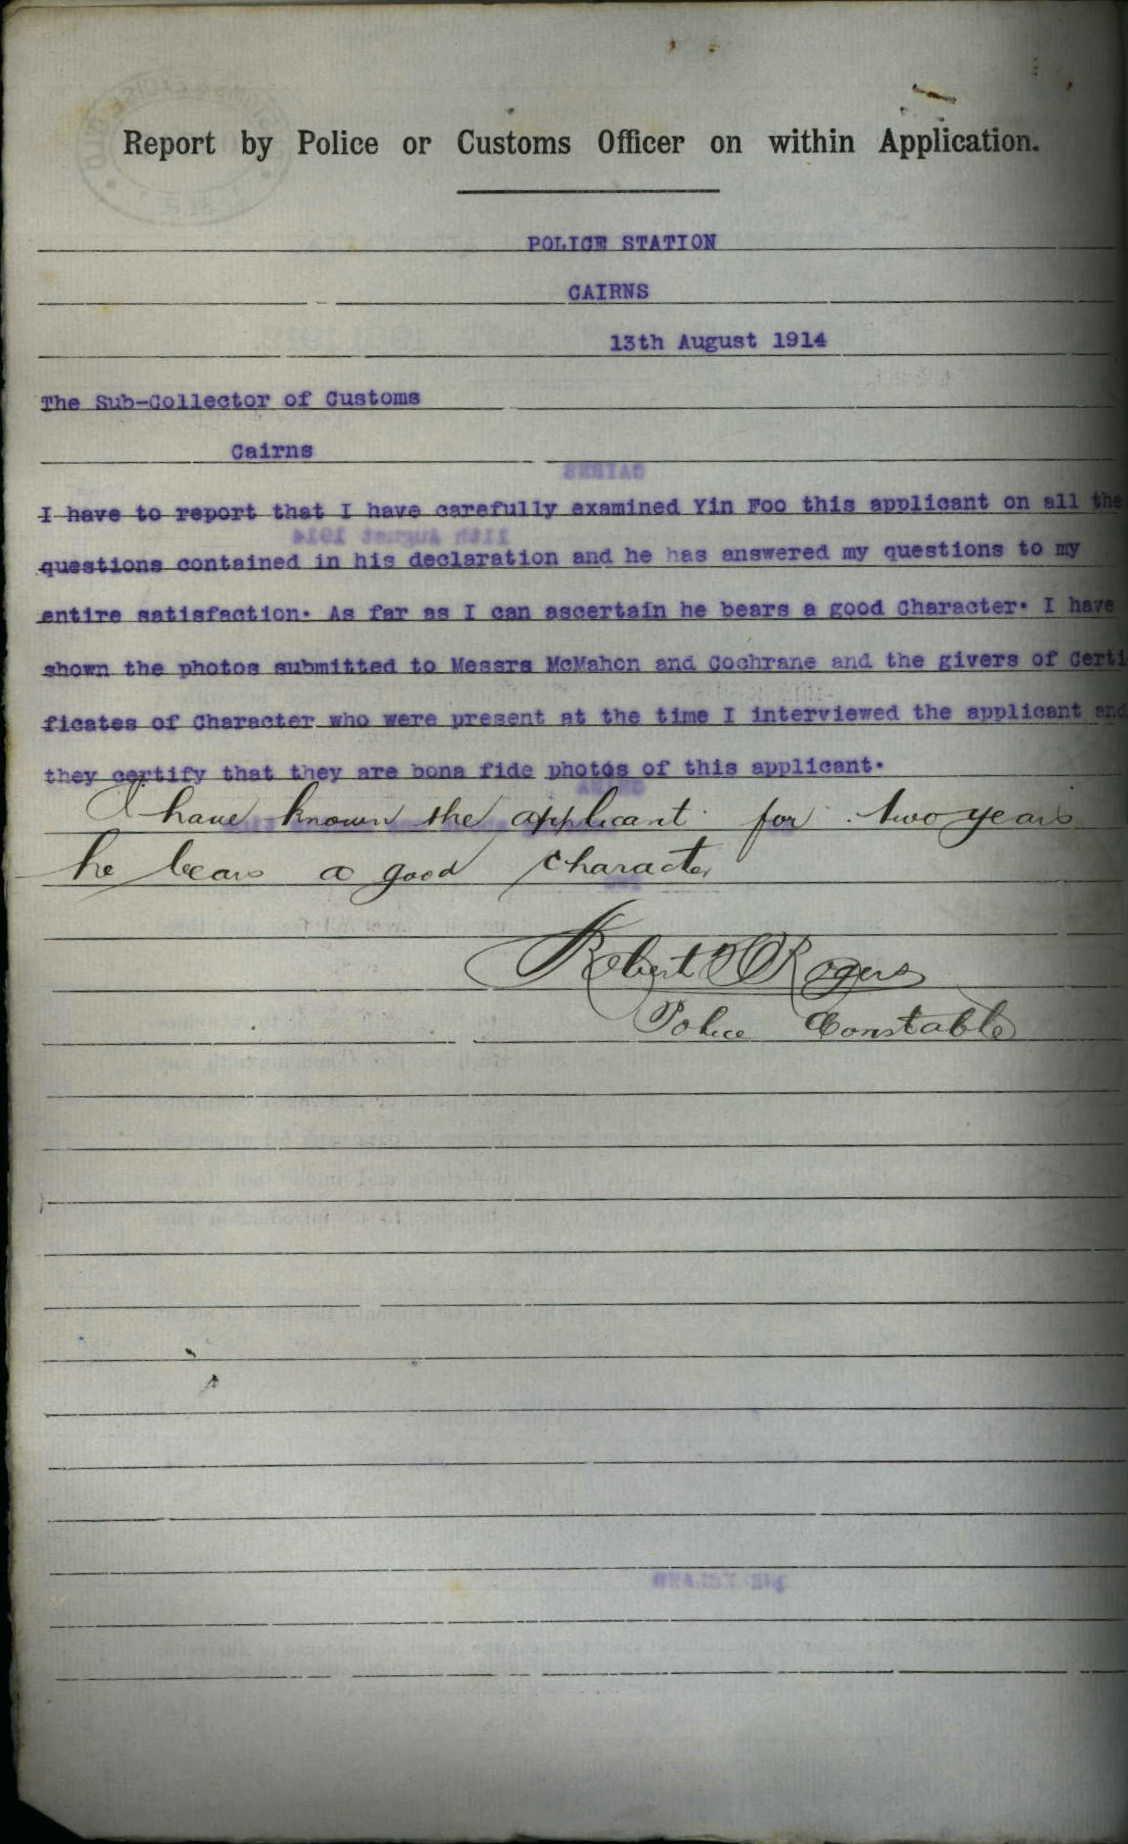 Report by Police or Customs Officer on within Application.
POLICE STATION
CAIRNS
13th August 1914
The Sub-Collector of Customs
Cairns
CAIRNS
I have to report that I have carefully examined Yin Foo this applicant on all the
11th August 1914
questions contained in his declaration and he has answered my questions to my
entire satisfaction. As far as I can ascertain he bears a good Character. I have
shown the photos submitted to Messrs McMahon and Cochrane and the givers of Certi
ficates of Character who were present at the time I interviewed the applicant and
they certify that they are bona fide photos of this applicant.
I have known the applicant for two years
he bears a good character
Robert Rogers
Police Constable